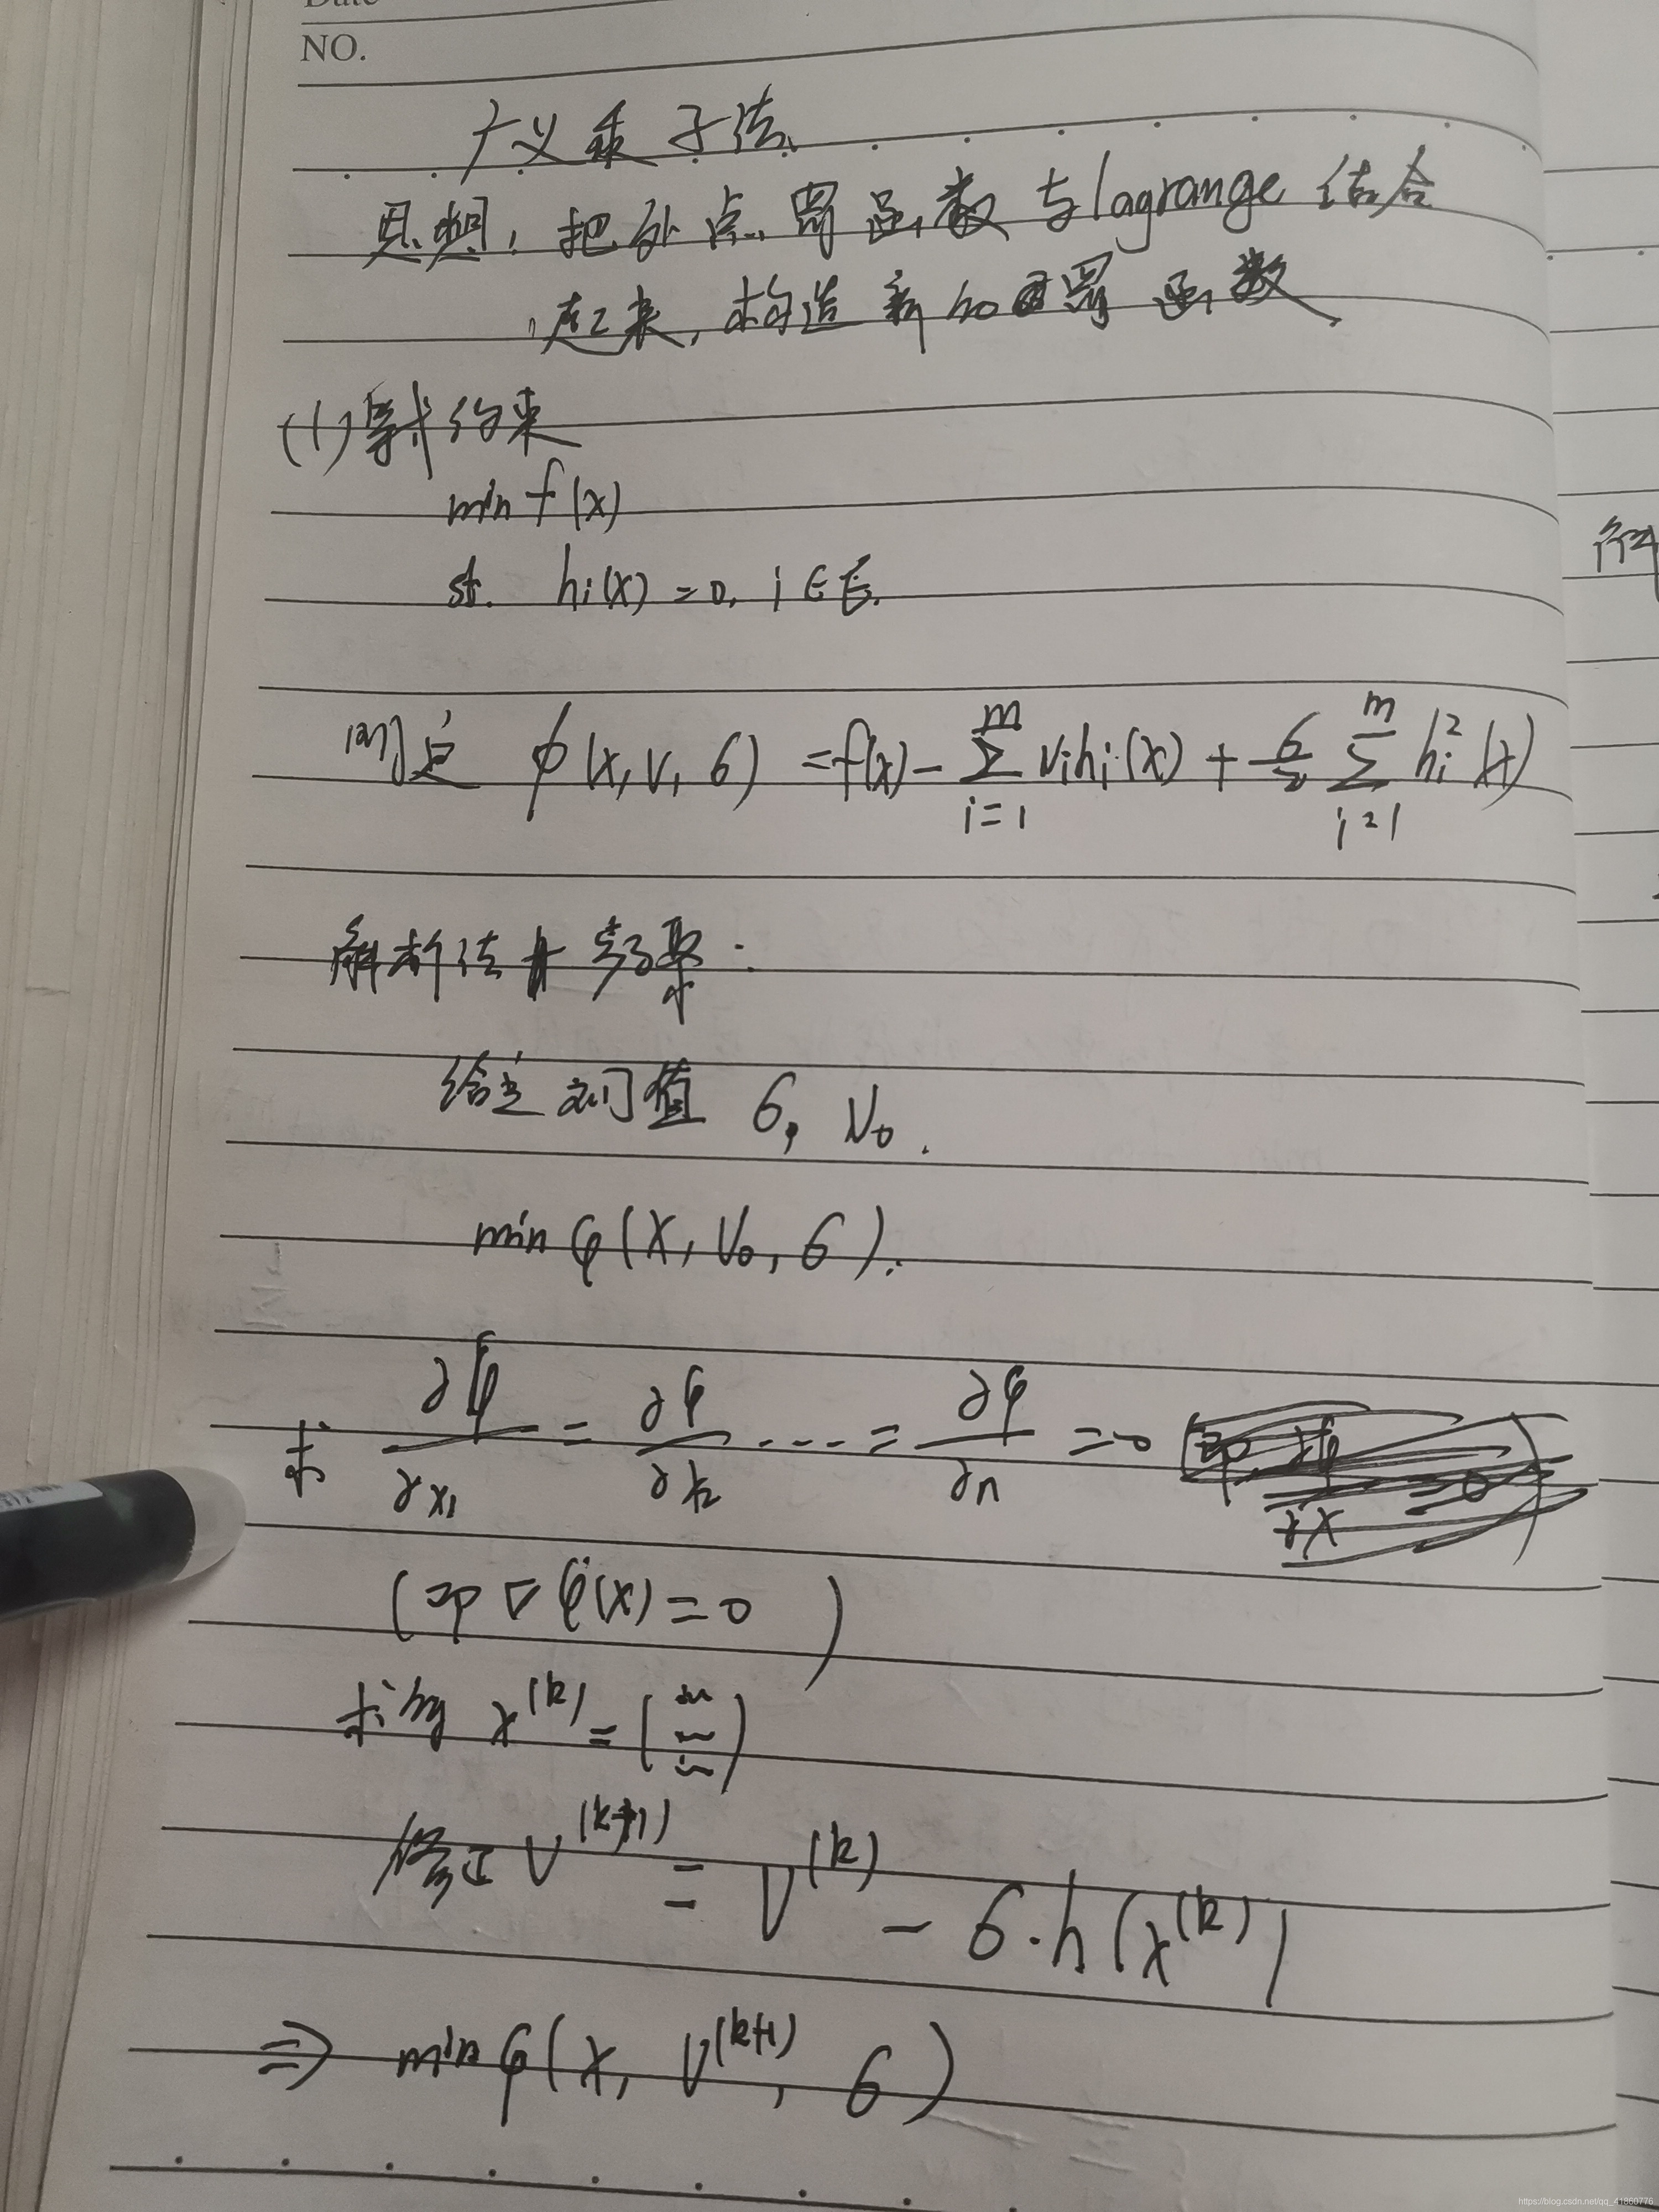 Date
NO.
广义乘子法
思想:把外点罚函数与lagrange结合
起来,构造新的罚函数
(1)等式约束
min f(x)
st. hi(x)=0, i∈E.
则定 φ(x, v, σ) = f(x) - Σ_{i=1}^{m} vihi(x) + σ/2 Σ_{i=1}^{m} hi²(x)
解析法步骤:
给定初值 σ, V₀.
min φ(X, V₀, σ).
求 ∂φ/∂x₁ = ∂φ/∂x₂ ... = ∂φ/∂n = 0
(即 ∇φ(x)=0)
求得 x^(k) =
修正 V^(k+1) = V^(k) - σ·h(x^(k))
⇒ min φ(x, V^(k+1), σ)
https://blog.csdn.net/qq_41860776